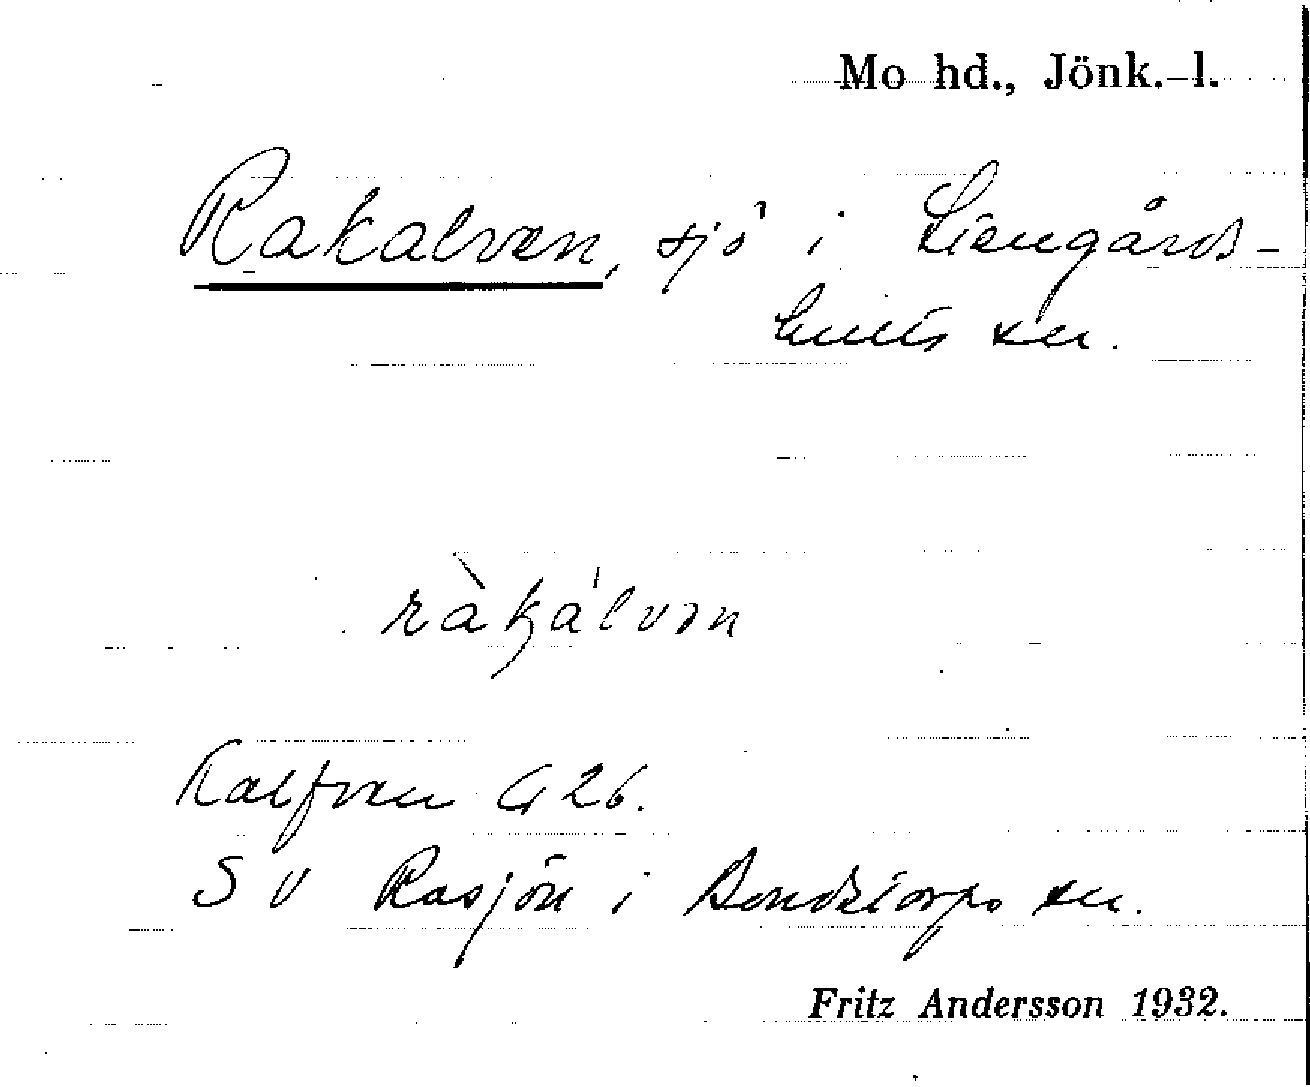 Mo hd., Jönk. l.
Rakalven, sjö i Stengårds-
hults sn.
ràkálvən
Kalfven G 26.
S V Rasjön i Bondstorps sn.
Fritz Andersson 1932.